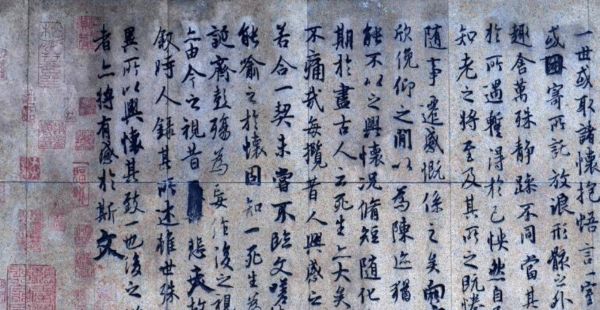 一世或取諸懷抱悟言一室
或因寄所託放浪形骸之外
趣舍萬殊靜躁不同當其
於所遇暫得於己怏然自
知老之將至及其所之既惓
隨事遷感慨係之矣向
欣俛仰之閒以為陳迹猶
能不以之興懷況脩短隨化
期於盡古人云死生亦大矣
不痛哉每攬昔人興感之
若合一契未嘗不臨文嗟
能喻之於懷固知一死生為
誕齊彭殤為妄作後之視
亦由今之視昔悲夫故
敘時人錄其所述雖世殊
異所以興懷其致一也後之
者亦將有感於斯文